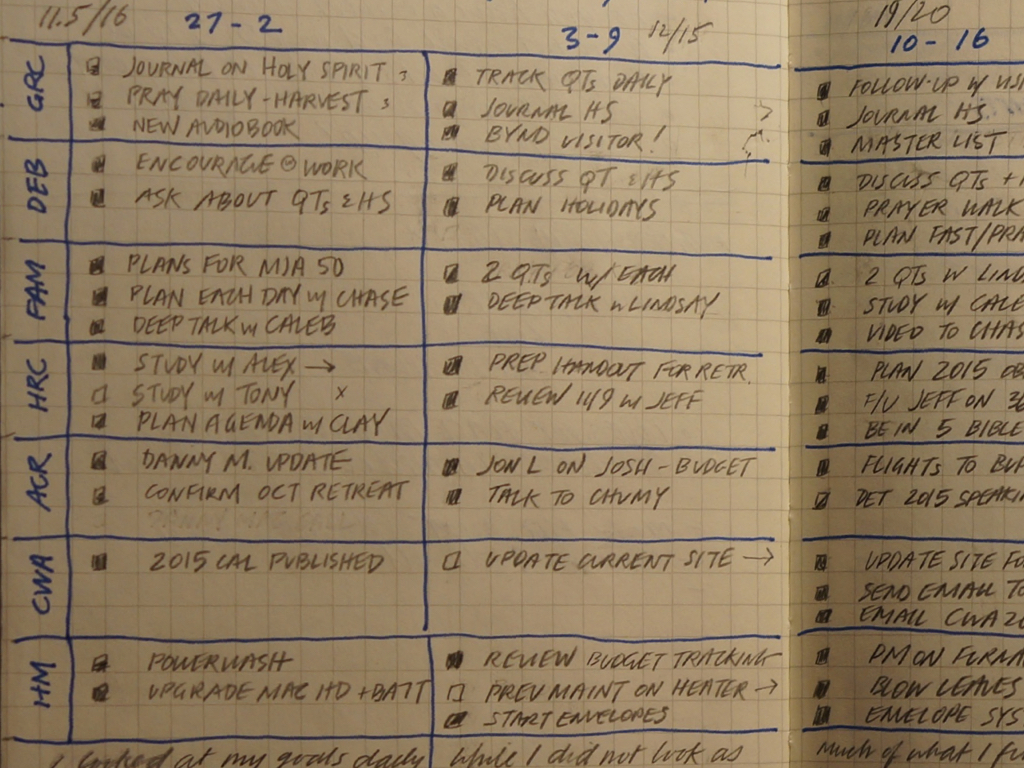 11.5/16 27-2
GRC
JOURNAL ON HOLY SPIRIT
PRAY DAILY-HARVEST
NEW AUDIOBOOK
DEB
ENCOURAGE WORK
ASK ABOUT QTs & HS
FAM
PLANS FOR MIA 50
PLAN EACH DAY W/ CHASE
DEEP TALK W/ CALEB
HRC
STUDY W/ ALEX →
STUDY W/ TONY x
PLAN AGENDA W/ CLAY
AGR
DANNY M. UPDATE
CONFIRM OCT RETREAT
CWA
2015 CAL PUBLISHED
HM
POWERWASH
UPGRADE MAC HD + BATT
I looked at my goals daily
3-9 12/15
TRACK QTs DAILY
JOURNAL HS
BYND VISITOR!
DISCUSS QT & HS
PLAN HOLIDAYS
2 QTs W/ EACH
DEEP TALK W/ LINDSAY
PREP HANDOUT FOR RETR.
REVIEW 11/9 W/ JEFF
JON L ON JOSH - BUDGET
TALK TO CHUMY
UPDATE CURRENT SITE →
REVIEW BUDGET TRACKING
PREV MAINT ON HEATER →
START ENVELOPES
While I did not look as
19/20
10-16
FOLLOW-UP W/
JOURNAL HS
MASTER LIST
DISCUSS QTs +
PRAYER WALK
PLAN FAST/PRA
2 QTs W/ LIND
STUDY W/ CALE
VIDEO TO CHAS
PLAN 2015
F/U JEFF ON
BE IN 5 BIBLE
FLIGHTS TO
DET 2015 SPEAKIN
UPDATE SITE FO
SEND EMAIL TO
EMAIL CWA
PM ON FURNA
BLOW LEAVES
ENVELOPE SYS
Much of what I